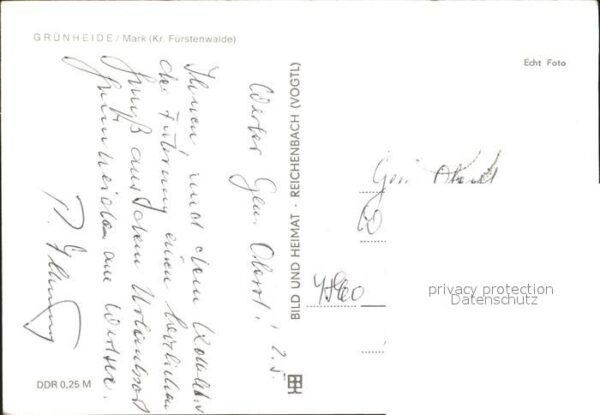 GRÜNHEIDE / Mark (Kr. Fürstenwalde)
Werter Gen. Oberst! 2.5.
Ihnen und dem Kollektiv
der Führung einen herzlichen
Gruß aus dem Urlaubsort
Grünheide am Werlsee.
BILD UND HEIMAT · REICHENBACH (VOGTL)
Echt Foto
Gen. Oberst
W
privacy protection
Datenschutz
DDR 0,25 M